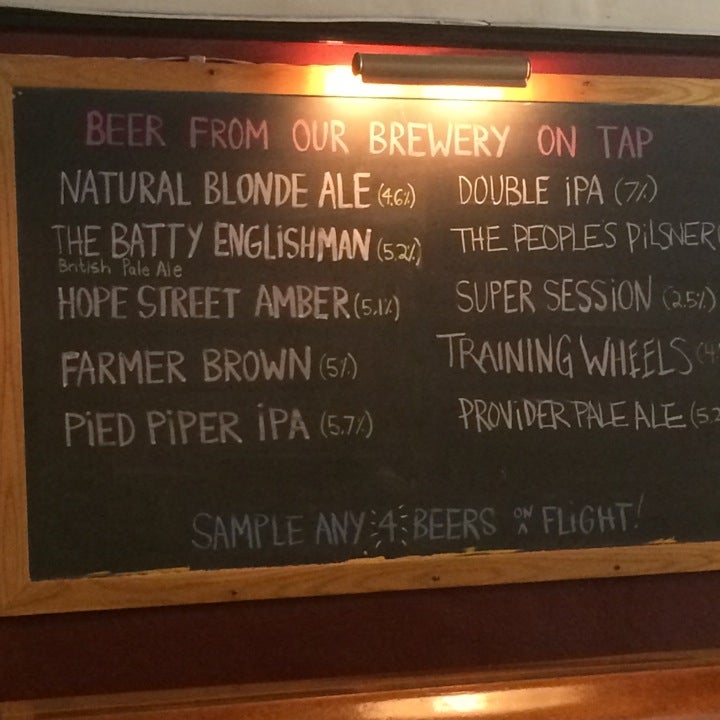 BEER FROM OUR BREWERY ON TAP
NATURAL BLONDE ALE (4.6%)
THE BATTY ENGLISHMAN (5.2%)
British Pale Ale
HOPE STREET AMBER (5.1%)
FARMER BROWN (5%)
PiED PiPER iPA (5.7%)
DOUBLE iPA (7%)
THE PEOPLE'S PiLSNER
SUPER SESSiON (2.5%)
TRAINING WHEELS
PROViDER PALE ALE
SAMPLE ANY 4 BEERS ON A FLiGHT!